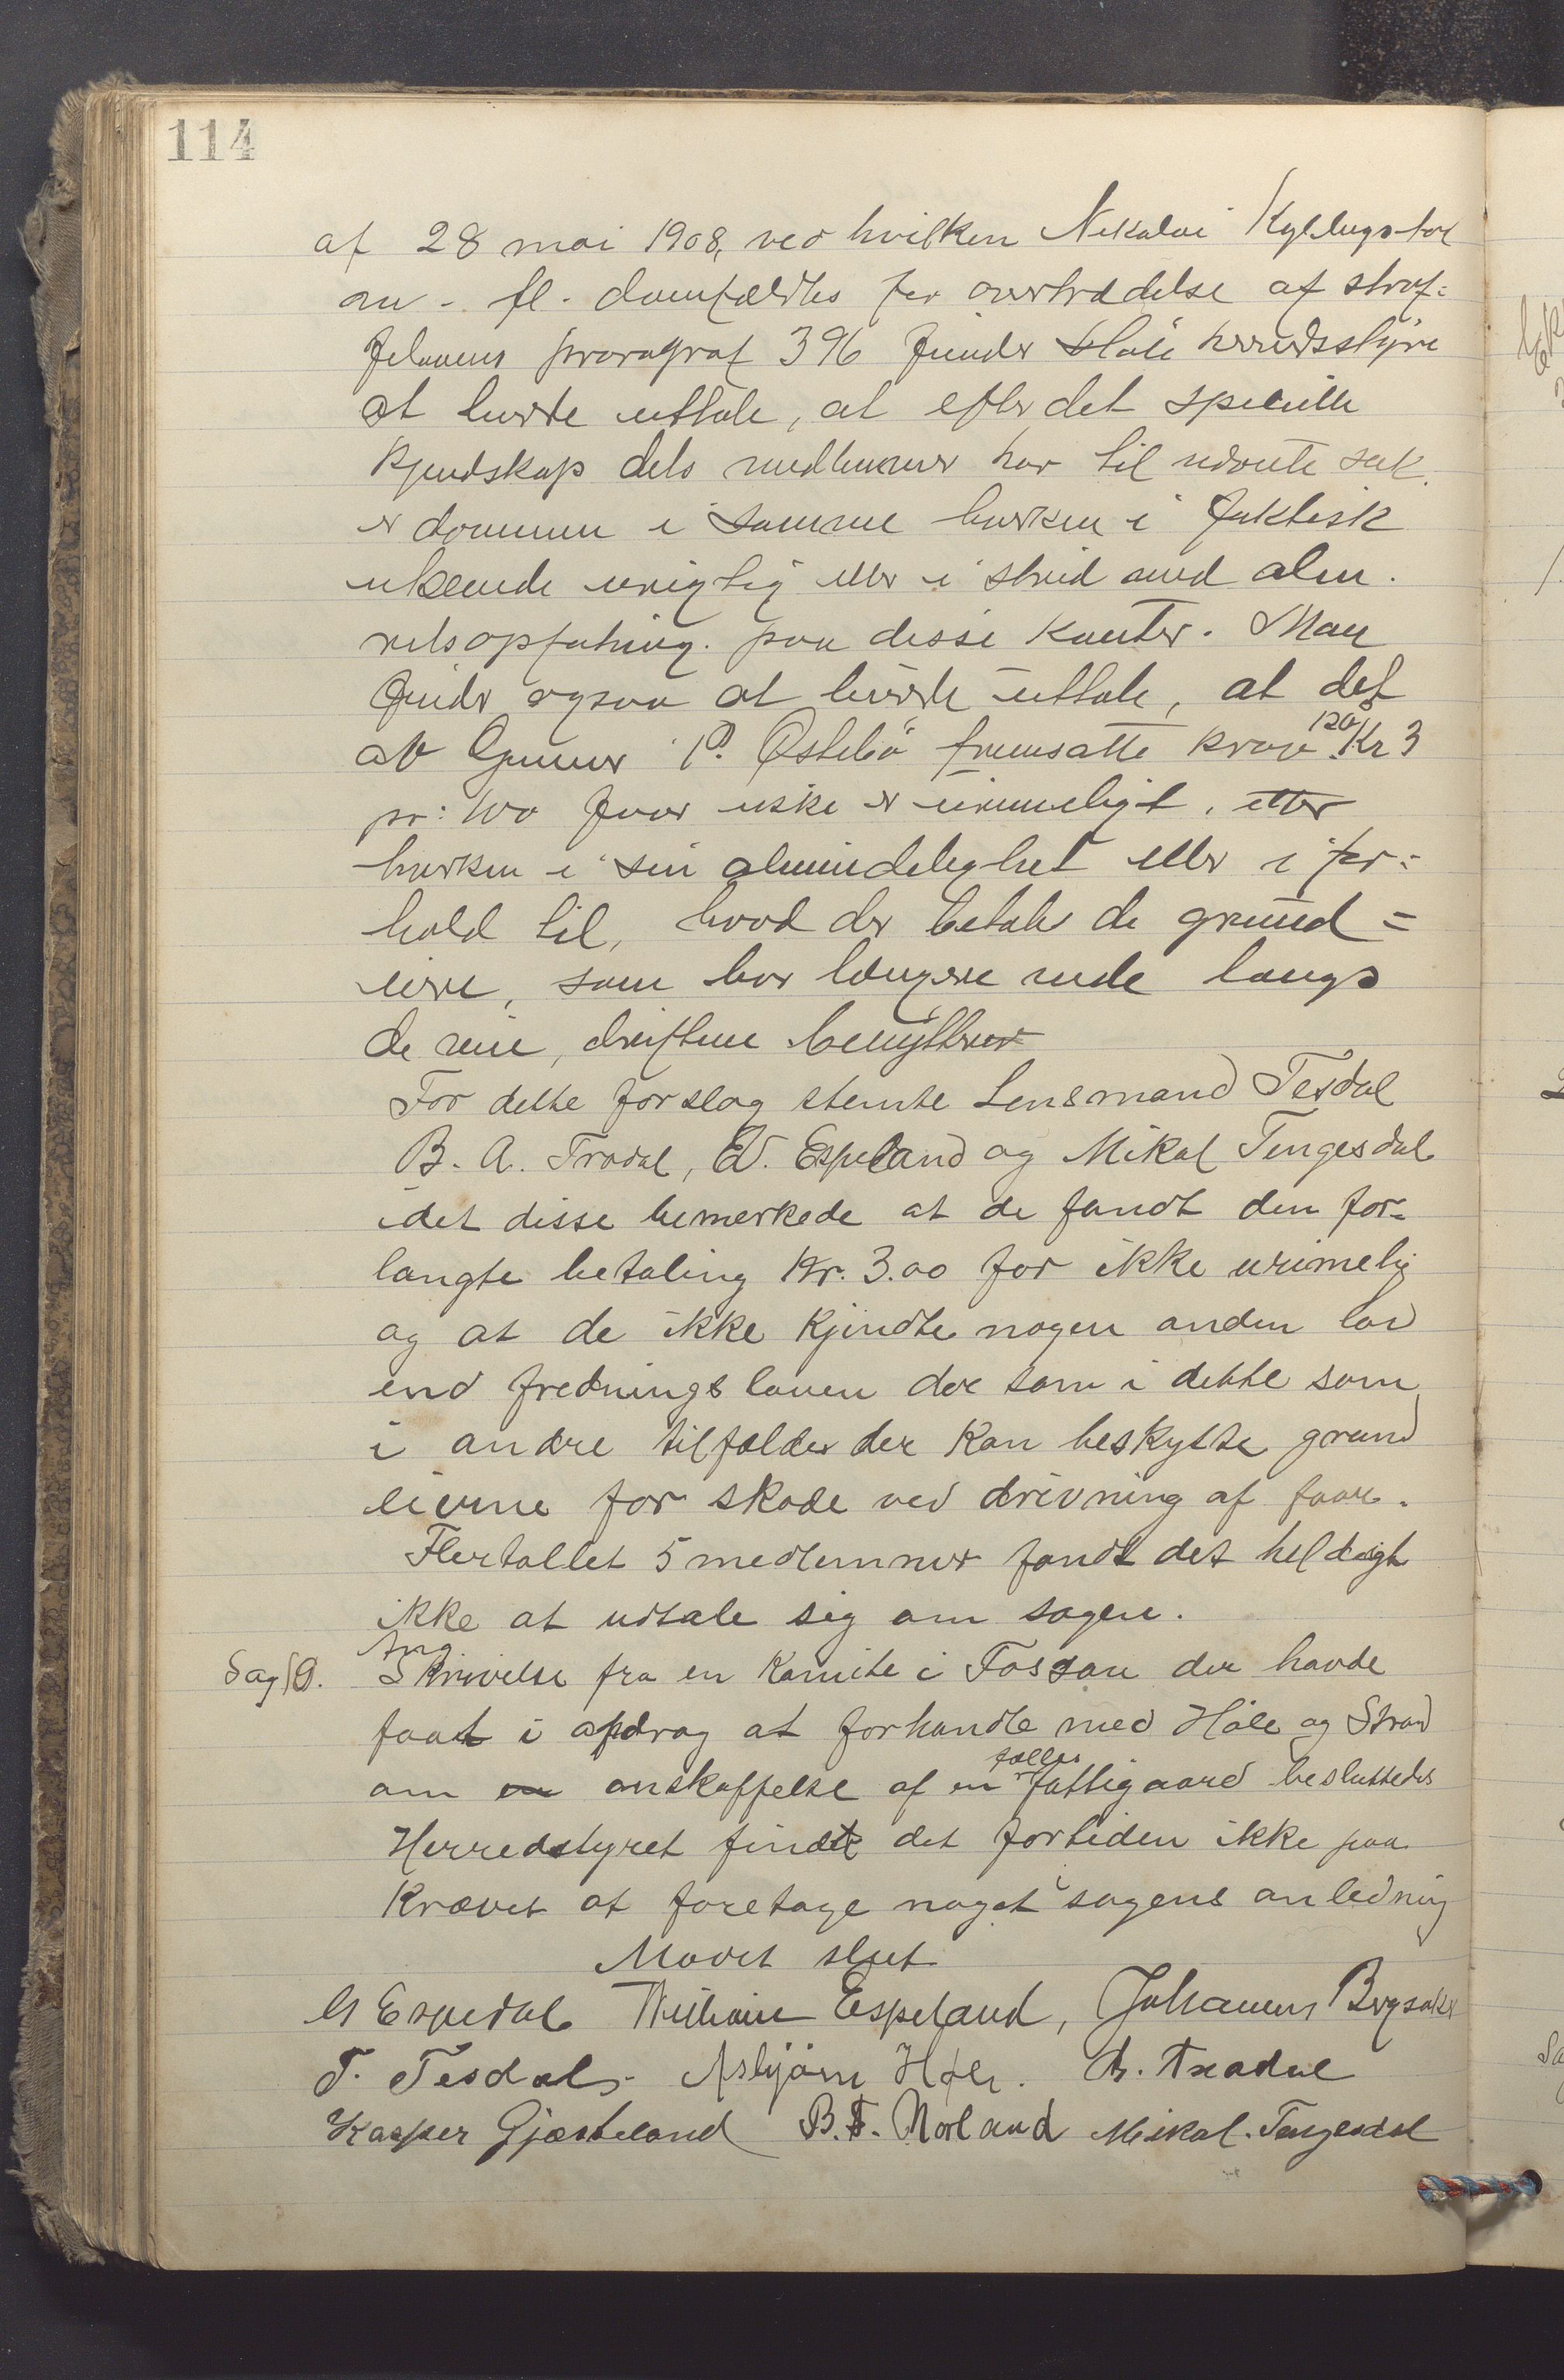 114
af 28 mai 1908, ved hvilken Nikolai Kyllingstad
m. fl. domfældtes for overtrædelse af straf=
felovens paragraf 396 finder Høle herredsstyre
at burde uttale, at efter det specielle
kjendskap dets medlemmer har til nævnte sak
er dommen i samme hverken i faktisk
uriktig eller i strid med alm.
retsopfatning paa disse kanter. Man
finder ogsaa at burde uttale, at det
av Gunnar P. Østebø fremsatte krav Kr 3
pr: 100 faar ikke er urimeligt, etter
hverken i sin almindelighet eller i for=
hold til, hvad der betales de grund=
eiere, som bor længere inde langs
de veie, driftene benytter
For dette forslag stemte Lensmand Tesdal
B. A. Tradal, W. Espeland og Mikal Tengesdal
idet disse bemerkede at de fandt den for=
langte betaling Kr. 3.00 for ikke urimelig
og at de ikke kjendte nogen anden lov
end fredningsloven der som i dette som
i andre tilfælder der kan beskytte grund
eierne for skade ved drivning af faar.
Flertallet 5 medlemmer fandt det heldigt
ikke at udtale sig om sagen.
Sag 9. Ang
Skrivelse fra en Komite i Fossan der havde
faat i opdrag at forhandle med Høle og Strand
om en anskaffelse af en fælles fattigaard besluttedes
Herredstyret findt det fortiden ikke paa
krævet at foretage noget i sagens anledning
Mødet slut
G Espedal Williám Espeland, Johannes Bergsaker
T. Tesdal. Asbjørn Høle. B. Tradal
Kasper Gjæsteland B. T. Norland Mikal. Tengesdal